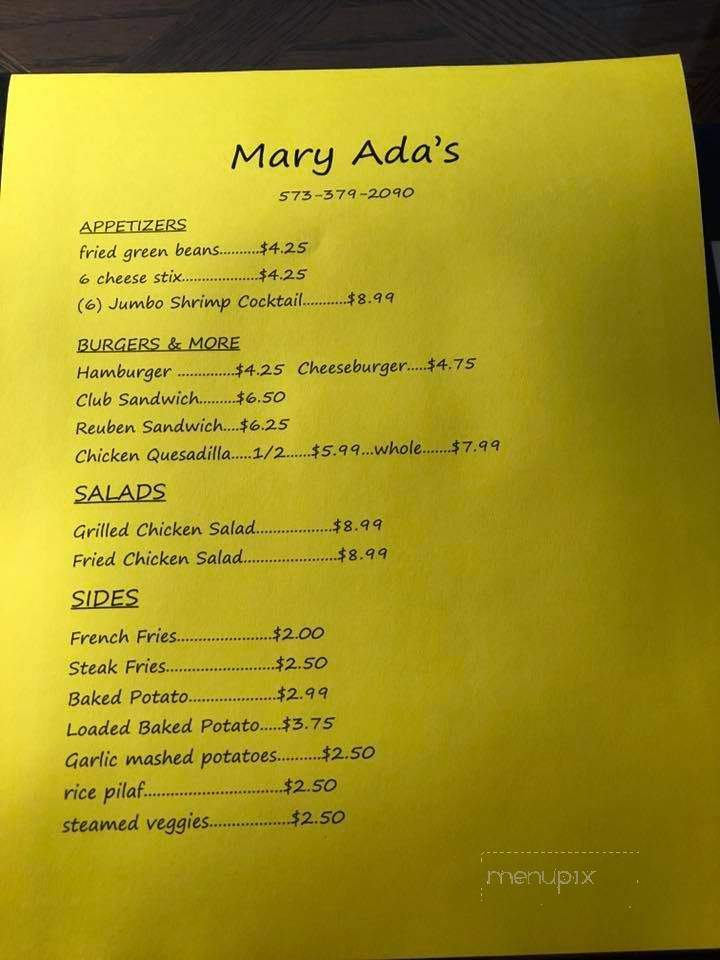 Mary Ada's
573-379-2090
APPETIZERS
fried green beans..........$4.25
6 cheese stix...................$4.25
(6) Jumbo Shrimp Cocktail...........$8.99
BURGERS & MORE
Hamburger ..............$4.25 Cheeseburger.....$4.75
Club Sandwich.........$6.50
Reuben Sandwich....$6.25
Chicken Quesadilla.....1/2......$5.99...whole.......$7.99
SALADS
Grilled Chicken Salad..................$8.99
Fried Chicken Salad......................$8.99
SIDES
French Fries......................$2.00
Steak Fries.........................$2.50
Baked Potato....................$2.99
Loaded Baked Potato.....$3.75
Garlic mashed potatoes..........$2.50
rice pilaf................................$2.50
steamed veggies...................$2.50
menupix